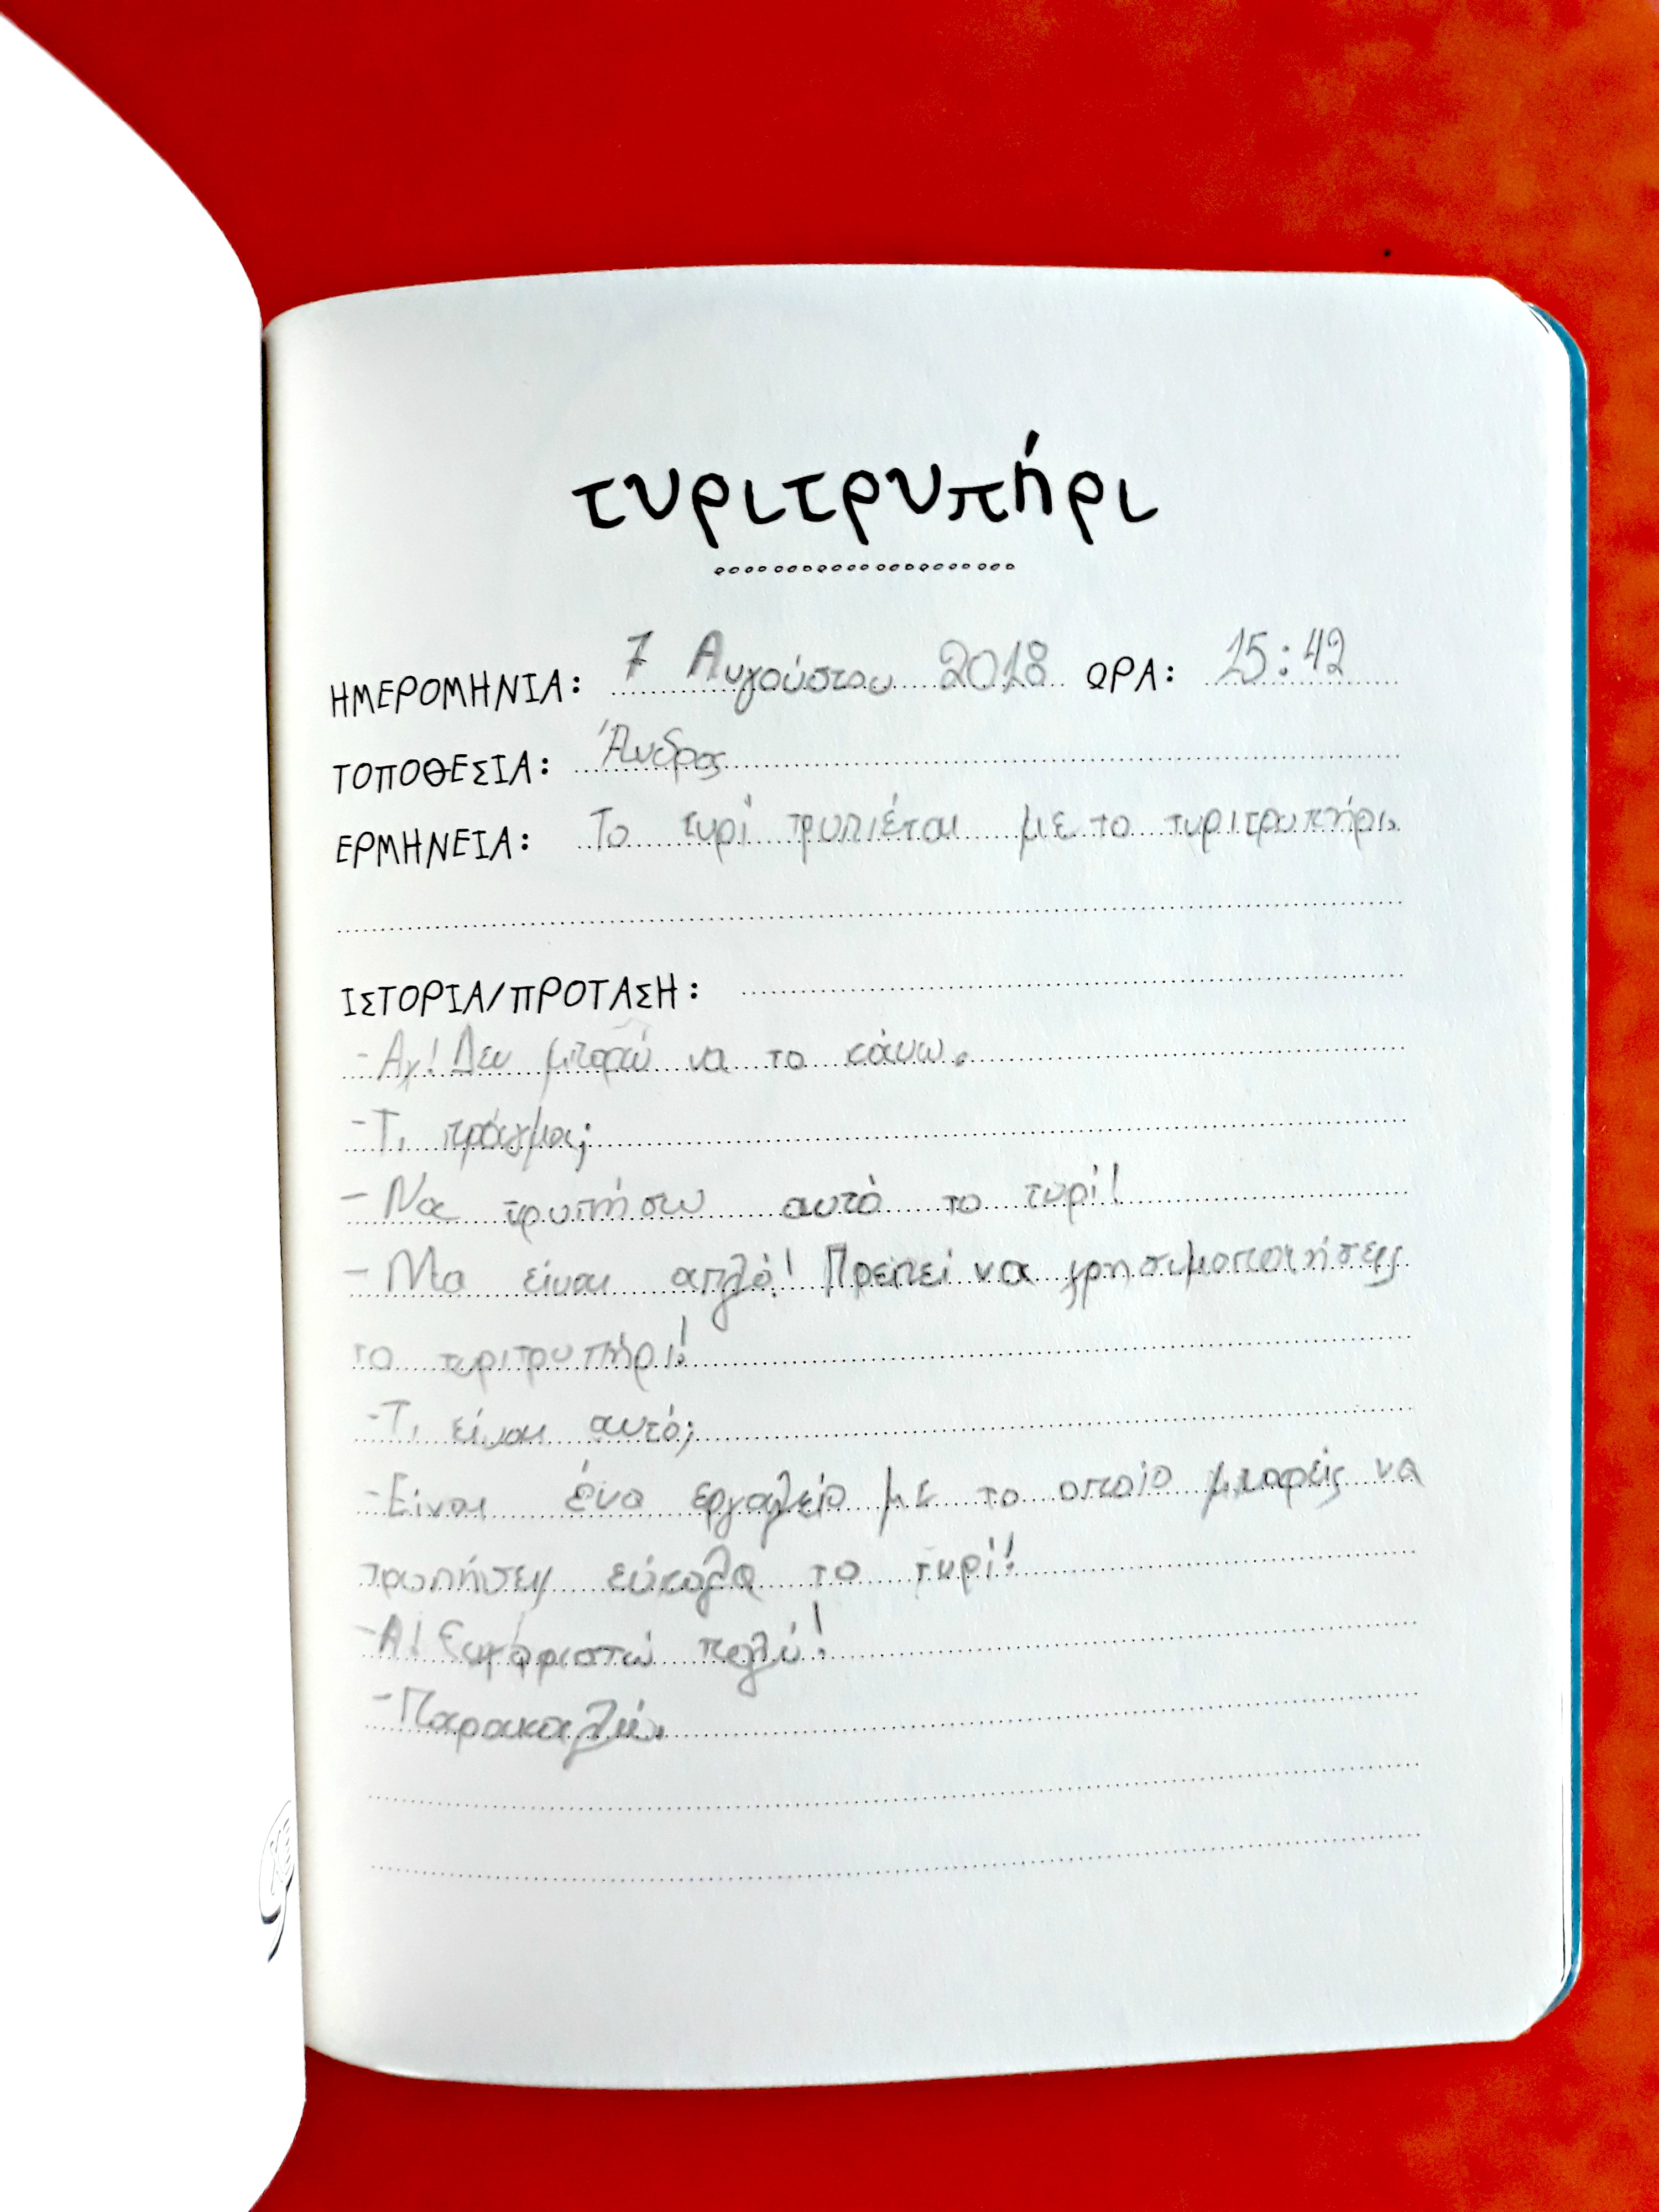 τυριτρυπήρι
ΗΜΕΡΟΜΗΝΙΑ: 7 Αυγούστου 2018 ΩΡΑ: 15:42
ΤΟΠΟΘΕΣΙΑ: Άνδρος
ΕΡΜΗΝΕΙΑ: Το τυρί τρυπιέται με το τυριτρυπήρι.
ΙΣΤΟΡΙΑ/ΠΡΟΤΑΣΗ:
- Αχ! Δεν μπορώ να το κάνω.
- Τι πράγμα;
- Να τρυπήσω αυτό το τυρί!
- Μα είναι απλό! Πρέπει να χρησιμοποιήσεις
το τυριτρυπήρι!
- Τι είναι αυτό;
- Είναι ένα εργαλείο με το οποίο μπορείς να
τρυπήσεις εύκολα το τυρί!
- Α! Ευχαριστώ πολύ!
- Παρακαλώ.